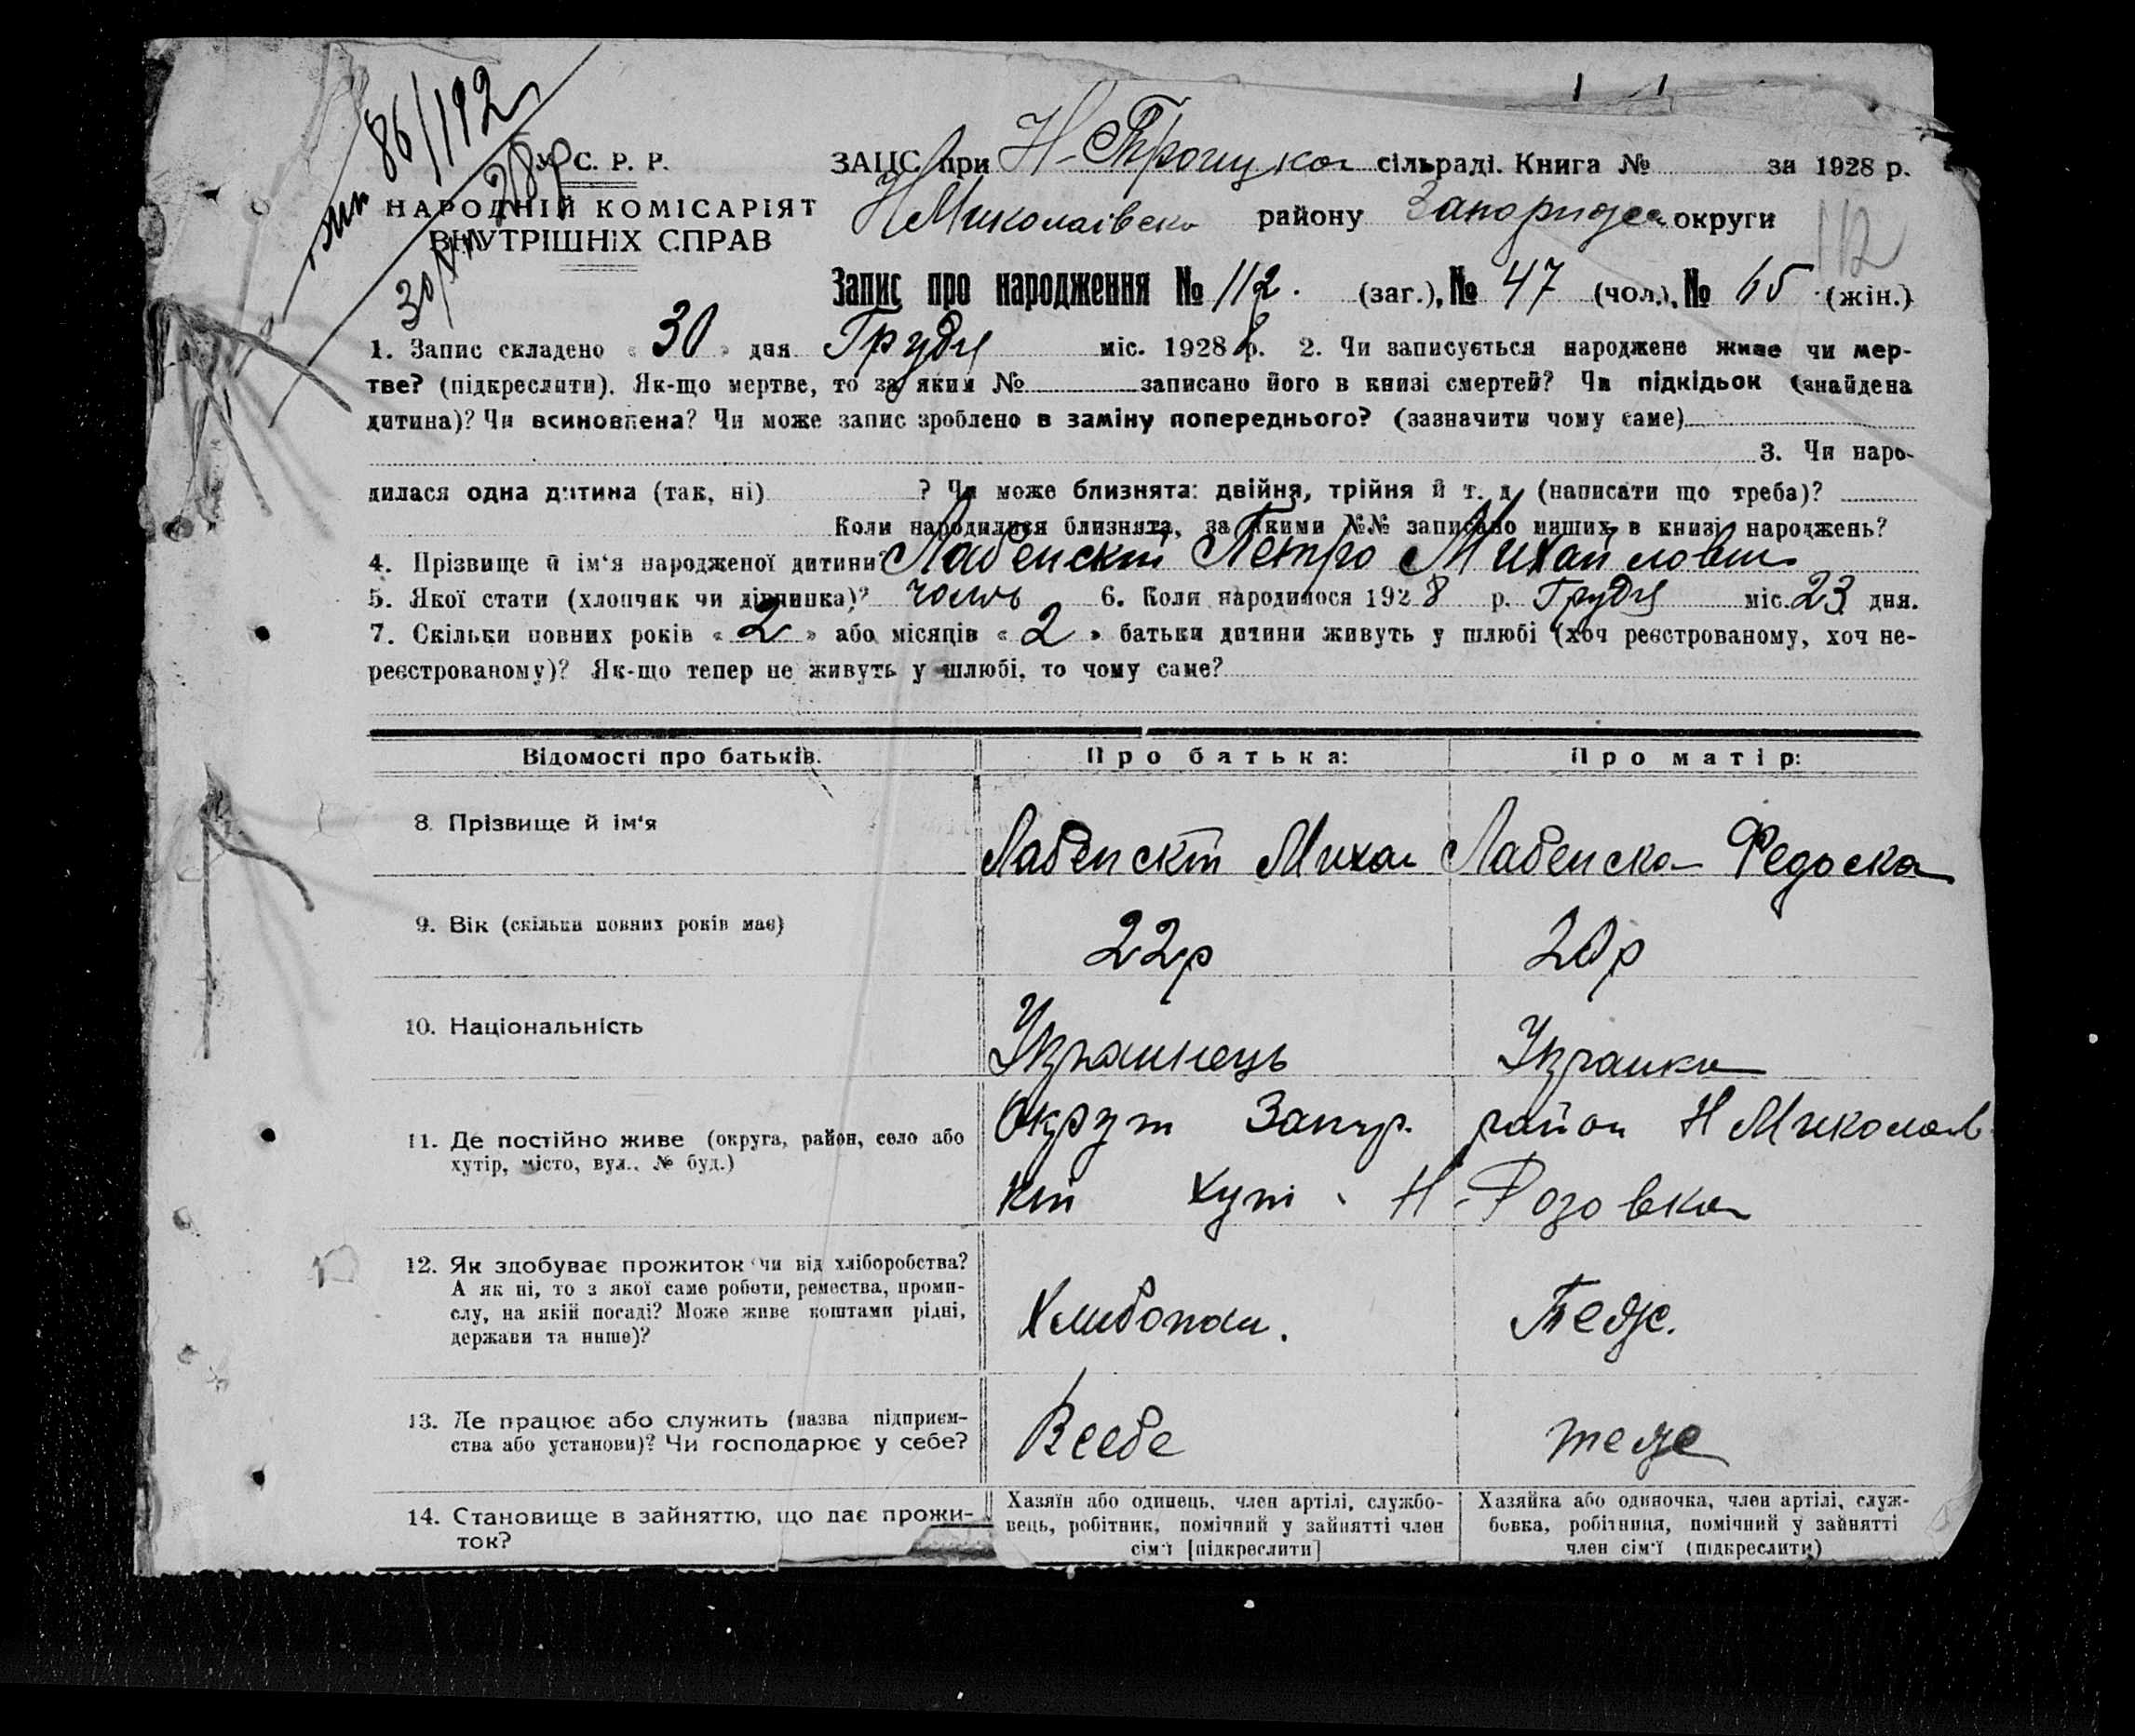 86/112
У. С. Р. Р.
НАРОДНІЙ КОМІСАРІЯТ
ВНУТРІШНІХ СПРАВ
ЗАЦС при Н-Троицкой сільраді. Книга № за 1928 р.
НМиколаівско району Запоризск округи
112
Запис про народження № 112. (заг.), № 47 (чол.), № 65 (жін.)
1. Запис складено « 30 » дня Грудня міс. 1928 р. 2. Чи записується народжене живе чи мер-
тве? (підкреслити). Як-що мертве, то за яким № записано його в книзі смертей? Чи підкідьок (знайдена
дитина)? Чи всиновлена? Чи може запис зроблено в заміну попереднього? (зазначити чому саме)
3. Чи наро-
дилася одна дитина (так, ні) ? Чи може близнята: двійня, трійня й т. д. (написати що треба)?
Коли народилися близнята, за якими №№ записано инших в книзі народжень?
4. Прізвище й ім‘я народженої дитини? Лабенскій Петро Михайлович
5. Якої стати (хлопчик чи дівчинка)? 6. Коли народилося 1928 р. Грудня міс. 23 дня.
7. Скільки повних років « 2 » або місяців « 2 » батьки дитини живуть у шлюбі (хоч реєстрованому, хоч не-
реєстрованому)? Як-що тепер не живуть у шлюбі, то чому саме?
Відомості про батьків. Про батька: Про матір:
8. Прізвище й ім‘я Лабенскій Михаи Лабенска Федоска
9. Вік (скільки повних років має) 22р 20р
10. Національність Украинець Украинка
11. Де постійно живе (округа, район, село або
хутір, місто, вул., № буд.)
Округи Запор. район НМиколаів
кій хут. Н-Розовка
12. Як здобуває прожиток чи від хліборобства?
А як ні, то з якої саме роботи, ремества, проми-
слу, на якій посаді? Може живе коштами рідні,
держави та инше)?
Хлибопаш. Теже.
13. Де працює або служить (назва підприєм-
ства або установи)? Чи господарює у себе?
Всебе теже
14. Становище в зайняттю, що дає прожи-
ток?
Хазяїн або одинець, член артілі, службо-
вець, робітник, помічний у зайнятті член
сім‘ї [підкреслити]
Хазяйка або одиночка, член артілі, служ-
бовка, робітниця, помічний у зайнятті
член сім‘ї (підкреслити)